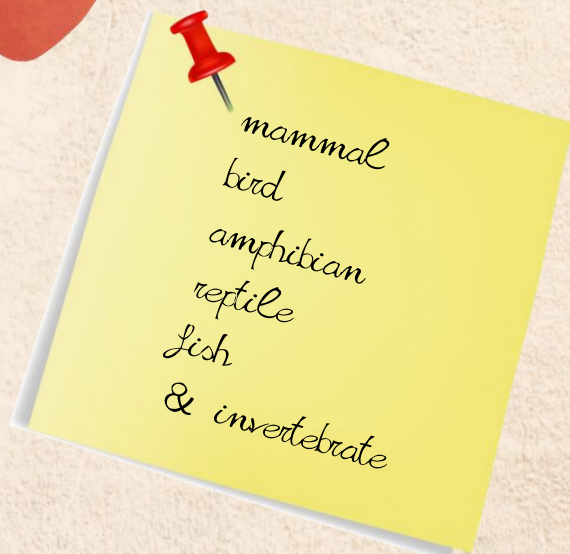 mammal
bird
amphibian
reptile
fish
& invertebrate